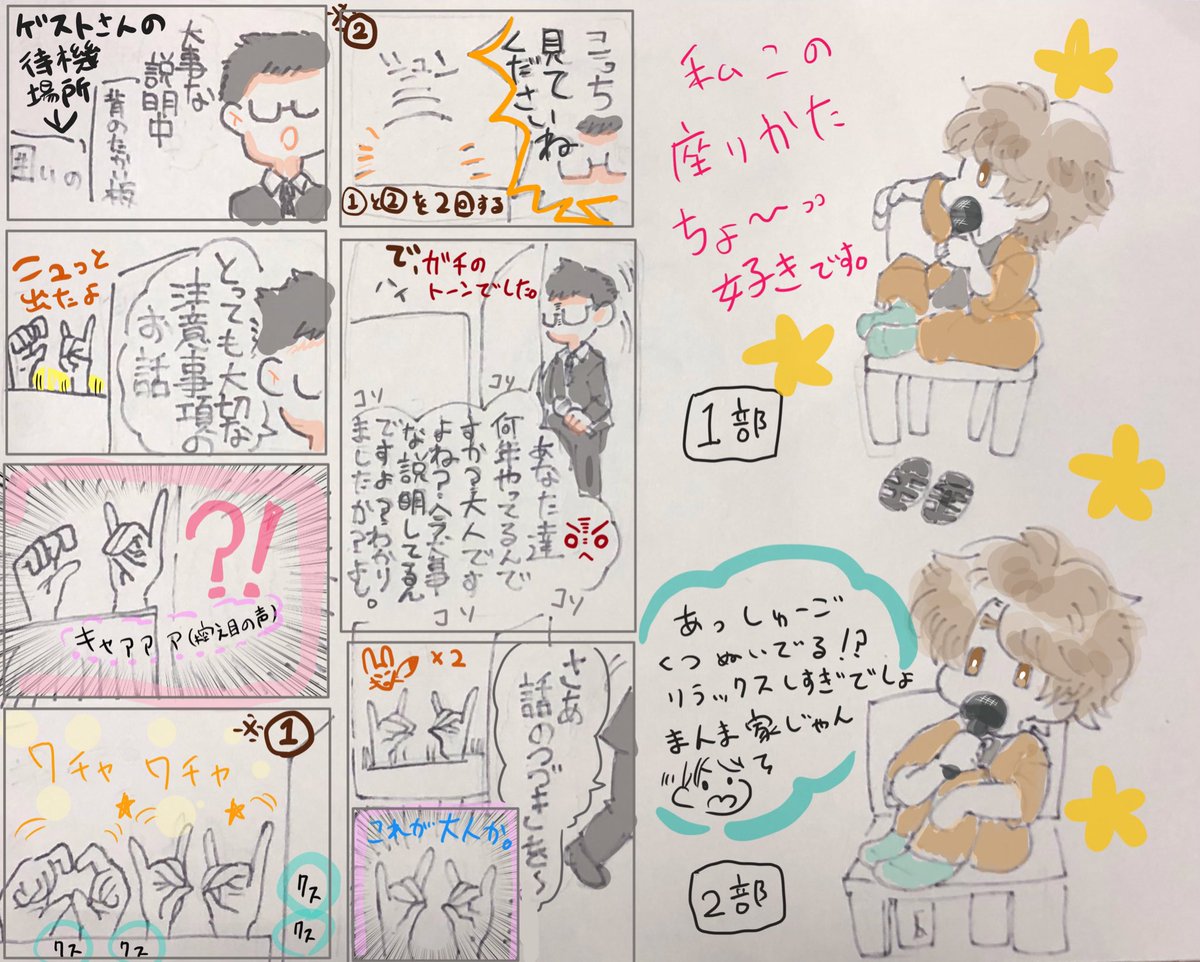 ゲストさんの
待機
場所
↓
囲いの
大事な
説明中
背のたかい板
ニュっと
出たよ
とっても大切な
注意事項の
お話
?!
キャァァァ(控え目の声)
※①
ワチャ ワチャ
クス
クス
クス
クス
※②
シュン
こっち
見ていね
くださいね
①と②を2回する
で、ガチの
トーンでした。
ハイ
コソ
コソ
コソ
コソ
あなた達
何年やってるんで
すか?大人です
よね?今大事
な説明してるん
ですよ?わかり
ましたか?よし。
×2
さとあ
話のつづきを〜
これが大人か。
私この
座りかた
ちょ〜っっ
好きです。
1部
あっしゅーご
くつぬいでる!?
リラックスしすぎでしょ
まんま家じゃん
2部